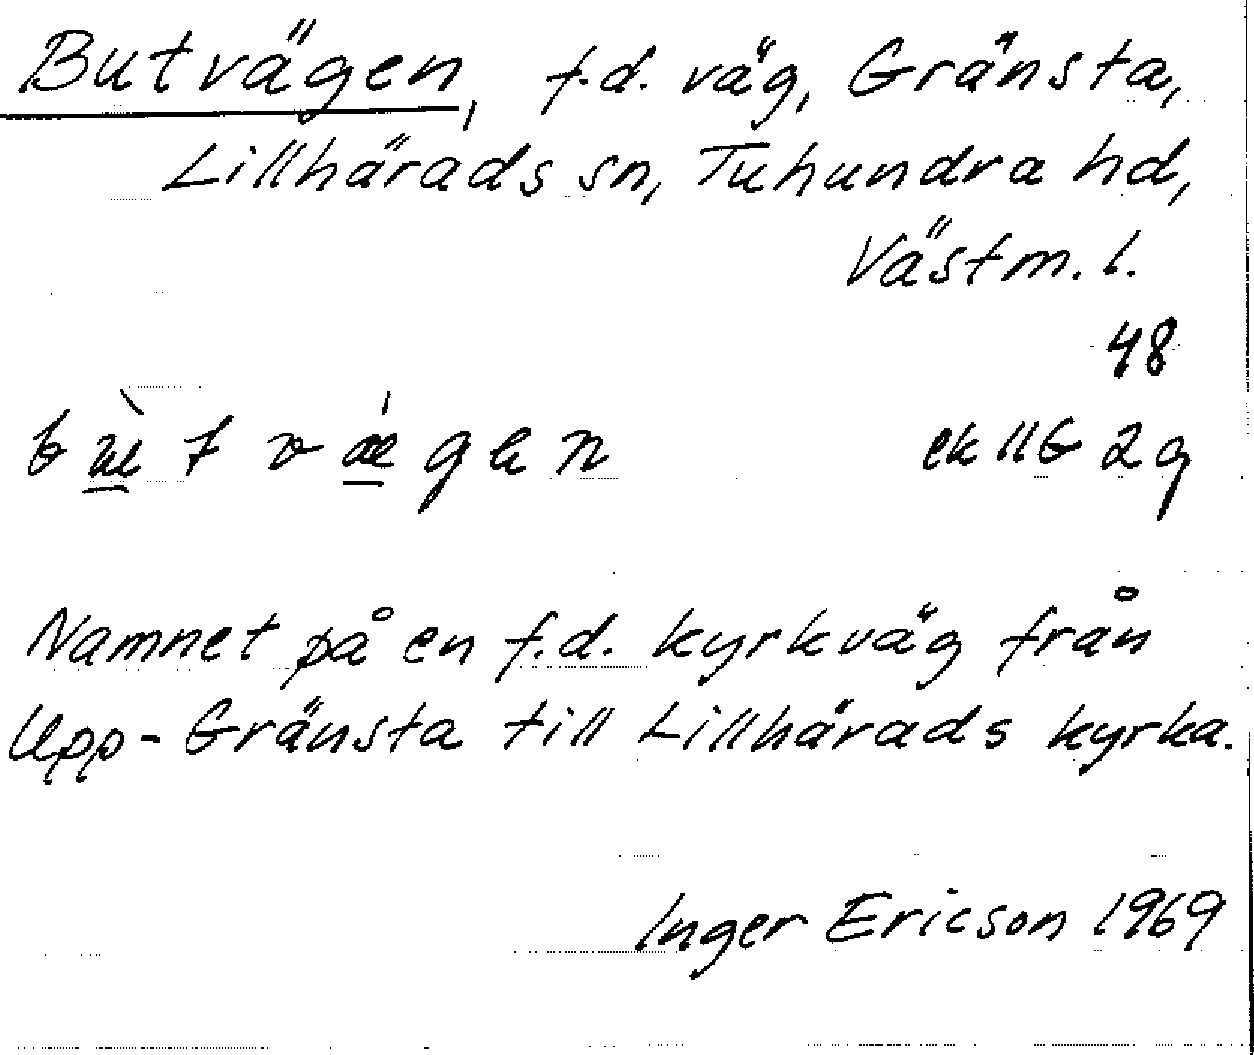 Butvägen, f.d. väg, Gränsta,
Lillhärads sn, Tuhundra hd,
Västm. l.
48
ek 11G 2g
Namnet på en f.d. kyrkväg från
Upp-Gränsta till Lillhärads kyrka.
Inger Ericson 1969